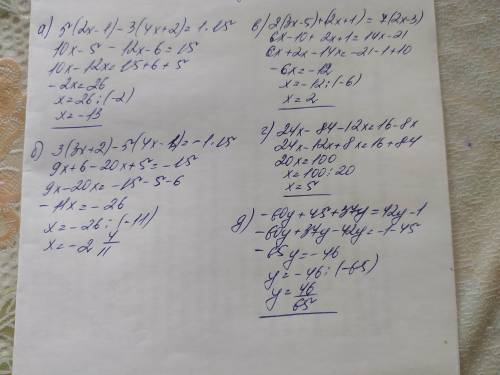 а) 5(2x-1)-3(4x+2)=1·15
10x-5-12x-6=15
10x-12x=15+6+5
-2x=26
x=26:(-2)
x=-13
б) 3(3x+2)-5(4x-1)=-1·15
9x+6-20x+5=-15
9x-20x=-15-5-6
-11x=-26
x=-26:(-11)
x=-2 4/11
в) 2(3x-5)+(2x+1)=7(2x-3)
6x-10+2x+1=14x-21
6x+2x-14x=-21-1+10
-6x=-12
x=-12:(-6)
x=2
г) 24x-84-12x=16-8x
24x-12x+8x=16+84
20x=100
x=100:20
x=5
д) -60y+45+37y=42y-1
-60y+37y-42y=-1-45
-65y=-46
y=-46:(-65)
y=46/65